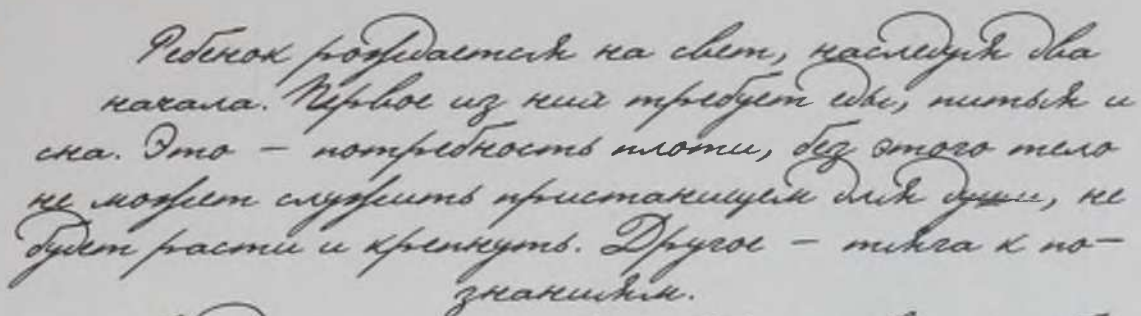 Ребёнок рождается на свет, наследуя два
начала. Первое из них требует еды, питья и
сна. Это — потребность плоти, без этого тело
не может служить пристанищем для души, не
будет расти и крепнуть. Другое — тяга к по-
знаниям.